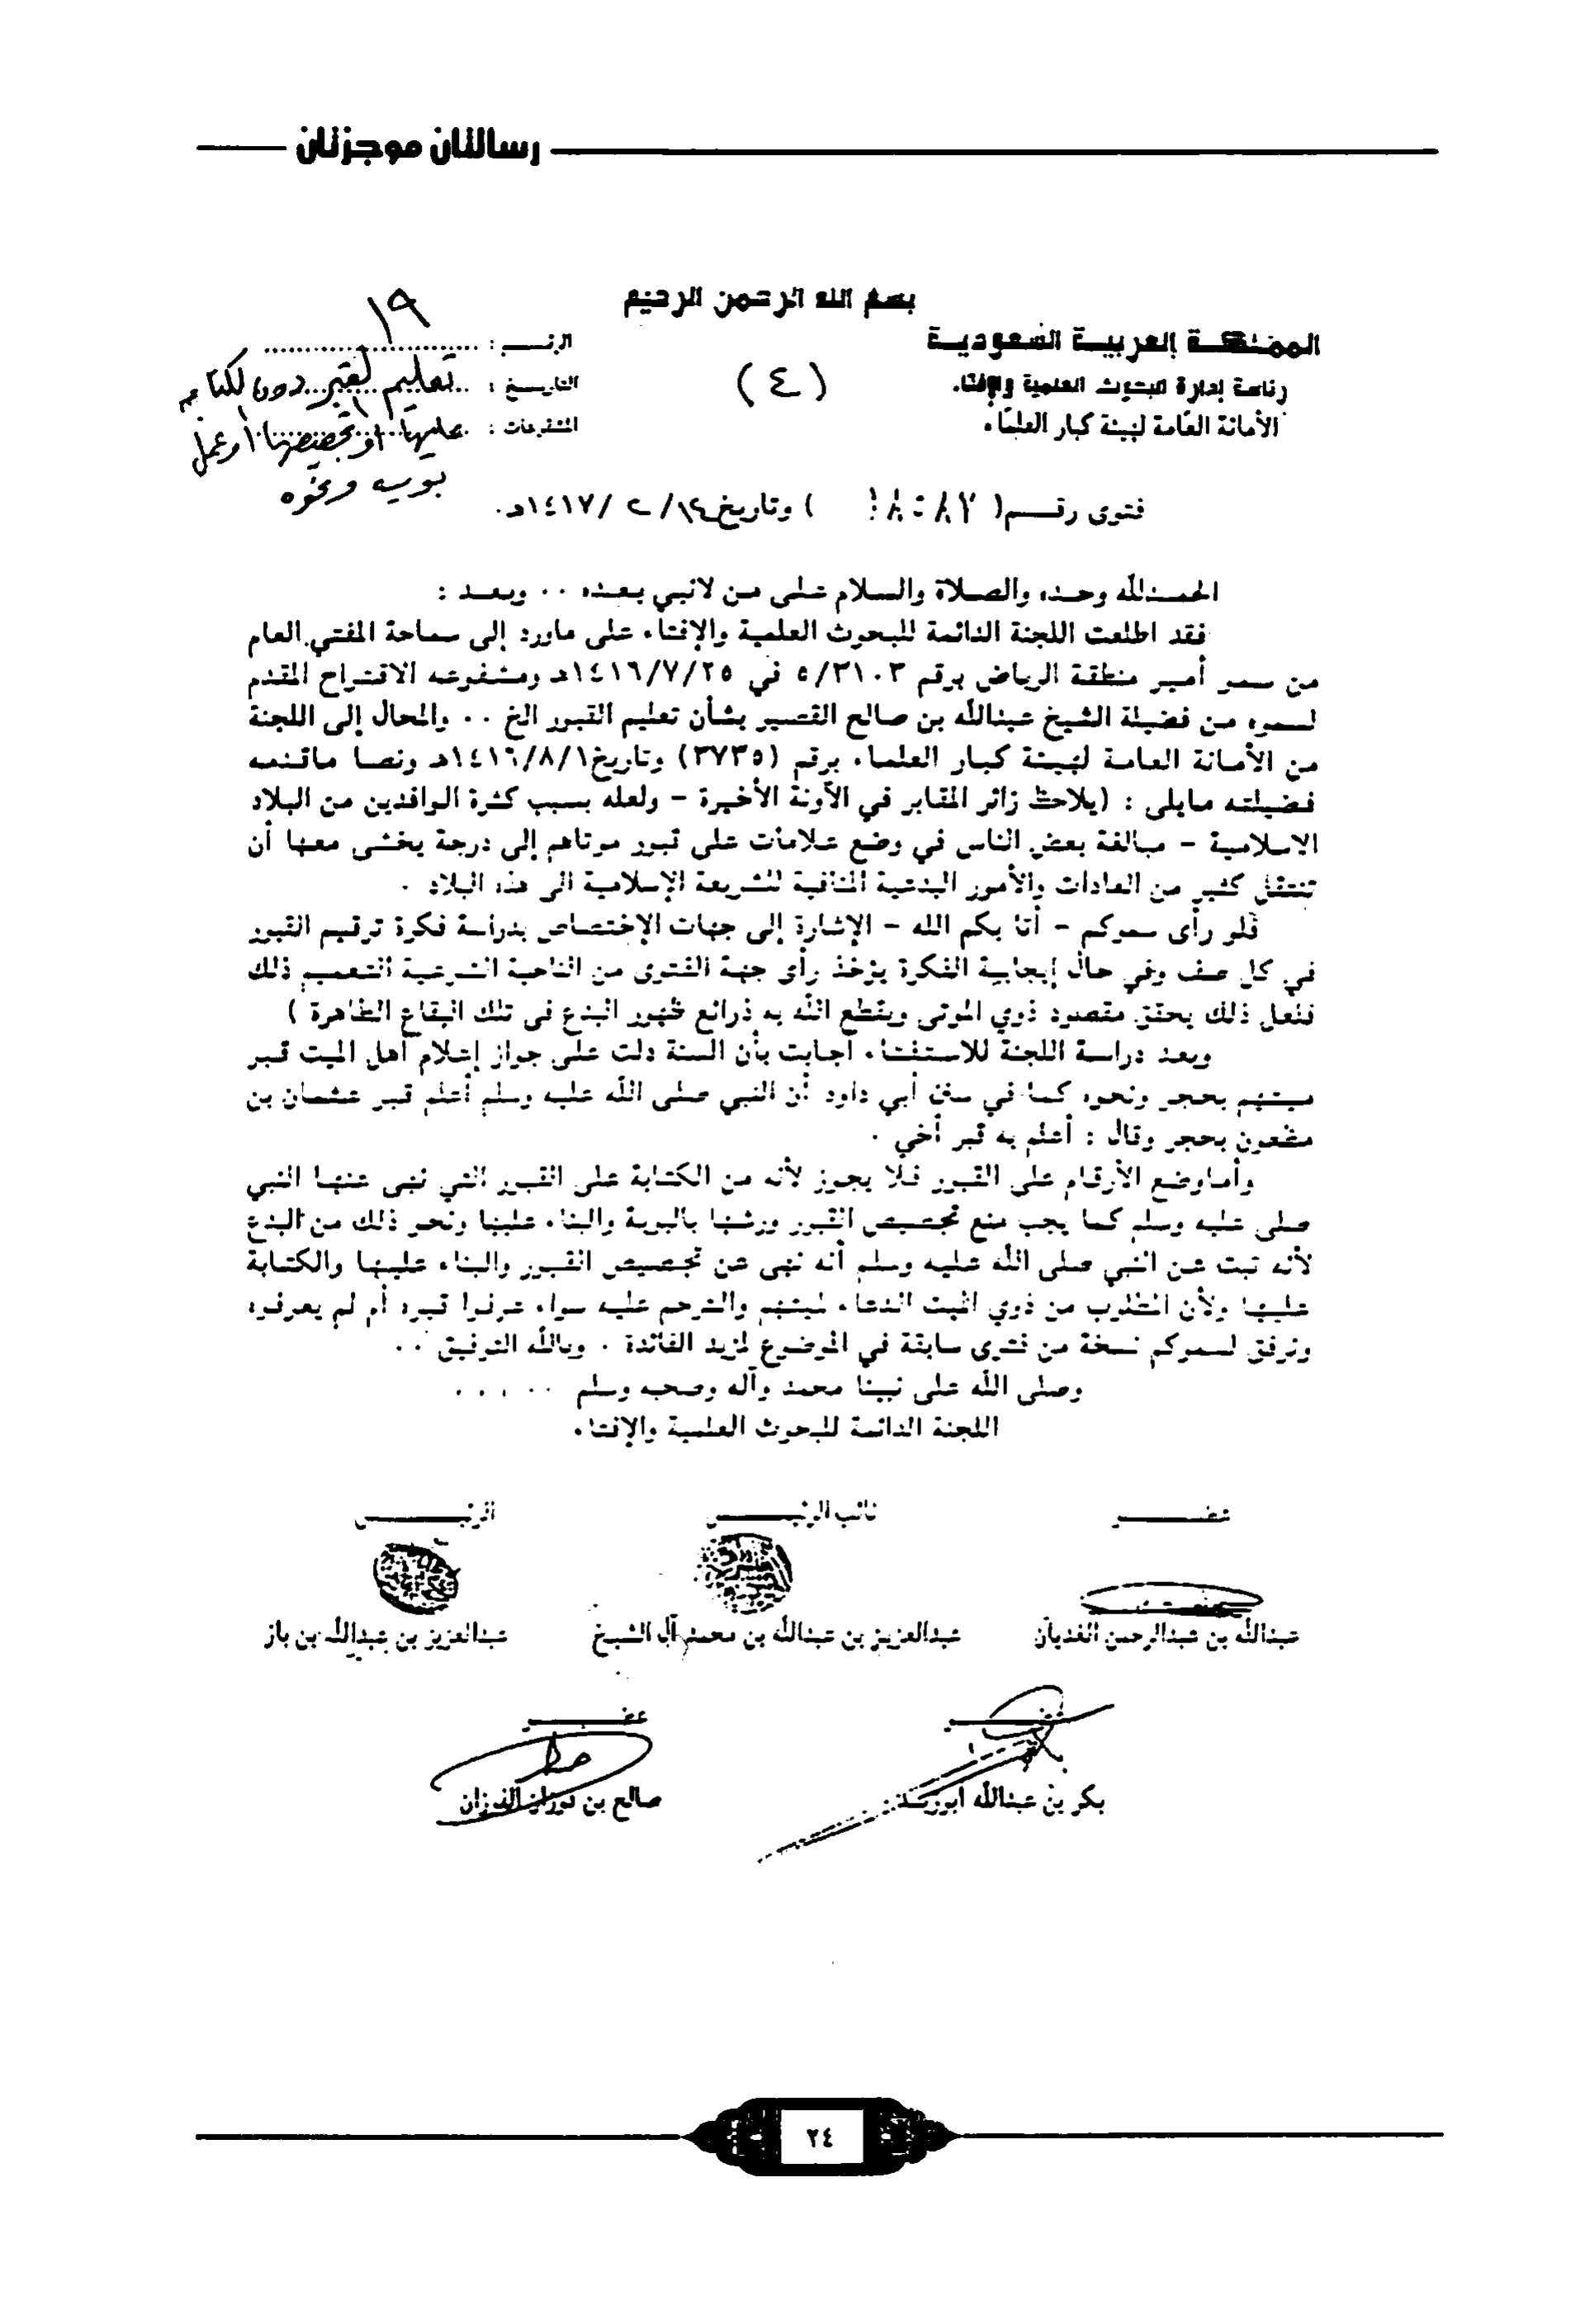 رسالتان موجزتان
بسم الله الرحمن الرحيم
المملكة العربية السعودية
رئاسة إدارة البحوث العلمية والإفتاء
الأمانة العامة لهيئة كبار العلماء
(٤)
الرقـــم : ١٩
التاريــخ :
المشفوعات :
تعليم القبر دون الكتابة
عليها أو تجصيصها أو عمل
بوية ونحوه
فتوى رقــم ( ١٨٠٨٢ ) وتاريخ ١٩/ ٢ /١٤١٧هـ.
الحمد لله وحده والصلاة والسلام على من لانبي بعده ٠٠ وبعد :
فقد اطلعت اللجنة الدائمة للبحوث العلمية والإفتاء على ماورد إلى سماحة المفتي العام
من سمو أمير منطقة الرياض برقم ٥/٣١٠٣ في ١٤١٦/٧/٢٥هـ ومشفوعه الاقتراح المقدم
لسموه من فضيلة الشيخ عبدالله بن صالح القصير بشأن تعليم القبور الخ ٠٠ والمحال إلى اللجنة
من الأمانة العامة لهيئة كبار العلماء برقم (٣٧٣٥) وتاريخ ١٤١٦/٨/١هـ ونصا ماقدمه
فضيلته مايلى : (يلاحظ زائر المقابر في الآونة الأخيرة - ولعله بسبب كثرة الوافدين من البلاد
الاسلامية - مبالغة بعض الناس في وضع علامات على قبور موتاهم إلى درجة يخشى معها أن
تنتقل كثير من العادات والأمور البدعية المنافية للشريعة الإسلامية الى هذه البلاد ٠
فلو رأى سموكم - أثابكم الله - الإشارة إلى جهات الإختصاص بدراسة فكرة ترقيم القبور
في كل صف وفي حال إيجابية الفكرة يؤخذ رأى جهة الفتوى من الناحية الشرعية لتعميم ذلك
فلعل ذلك يحقق مقصود ذوي الموتى ويقطع الله به ذرائع ظهور البدع فى تلك البقاع الطاهرة )
وبعد دراسة اللجنة للاستفتاء أجابت بأن السنة دلت على جواز إعلام أهل الميت قبر
ميتهم بحجر ونحوه كما في سنن أبي داود أن النبي صلى الله عليه وسلم أعلم قبر عثمان بن
مظعون بحجر وقال : أعلم به قبر أخي ٠
وأما وضع الأرقام على القبور فلا يجوز لأنه من الكتابة على القبور التي نهى عنها النبي
صلى عليه وسلم كما يجب منع تجصيص القبور ورشها بالبوية والبناء عليها ونحو ذلك من البدع
لأنه ثبت عن النبي صلى الله عليه وسلم أنه نهى عن تجصيص القبور والبناء عليها والكتابة
عليها ولأن المطلوب من ذوي الميت الدعاء لميتهم والترحم عليه سواء عرفوا قبره أم لم يعرفوه
ونرفق لسموكم نسخة من فتوى سابقة في الموضوع لمزيد الفائدة ٠ وبالله التوفيق ٠٠
وصلى الله على نبينا محمد وآله وصحبه وسلم ٠٠٠٠٠
اللجنة الدائمة للبحوث العلمية والإفتاء
عضــــو نائب الرئيــــس الرئيــــس
عبدالله بن عبدالرحمن الغديان عبدالعزيز بن عبدالله بن محمد آل الشيخ عبدالعزيز بن عبدالله بن باز
عضــــو عضــــو
بكر بن عبدالله ابوزيد صالح بن فوزان الفوزان
٢٤